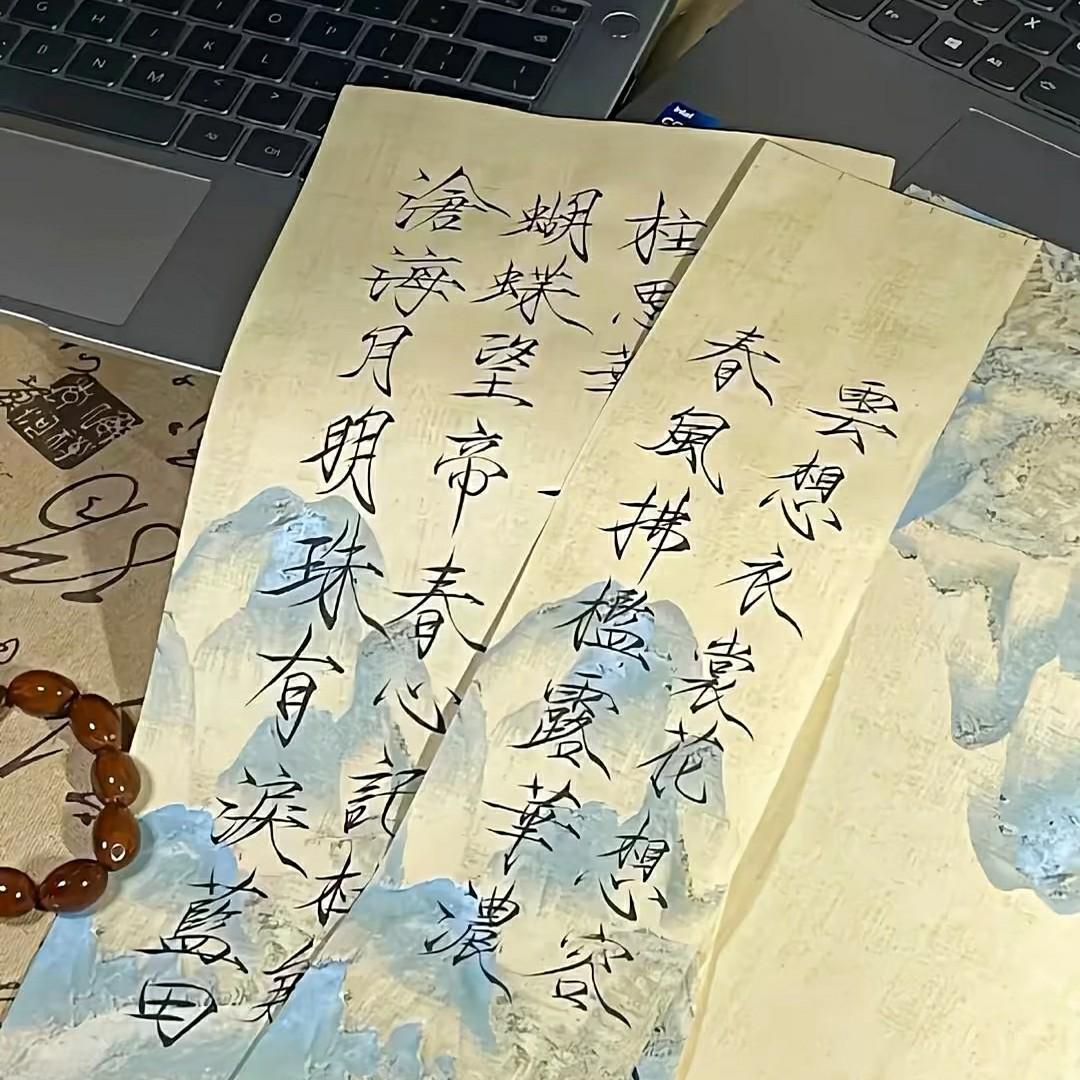 雲想衣裳花想容
春風拂檻露華濃
柱思華一
蝴蝶望帝春心託杜
滄海月明珠有淚藍田
intel